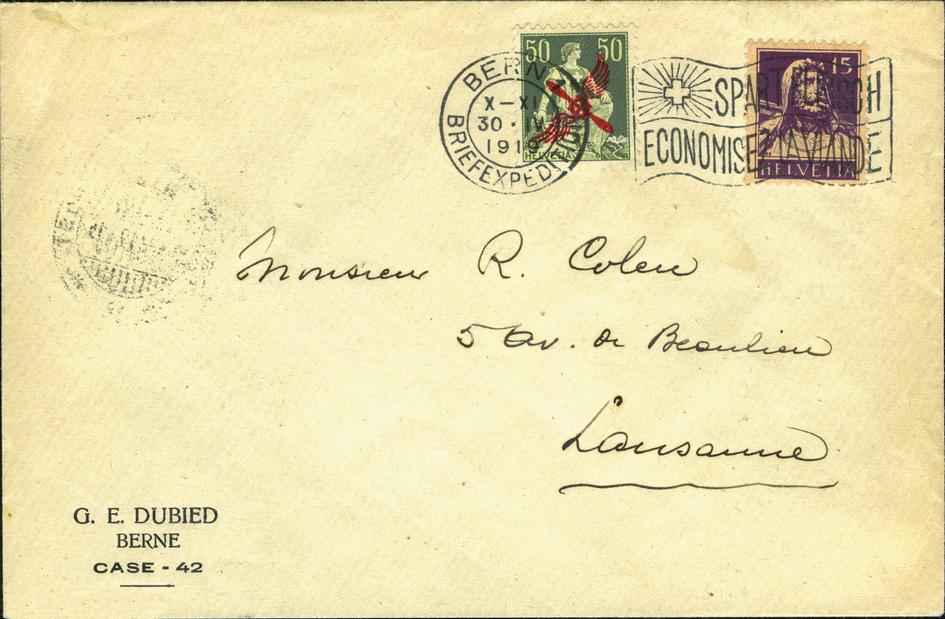 50 50
HELVETIA
15
HELVETIA
BERN
X–XI
30·IV
1919
BRIEFEXPEDITION
SPART FLEISCH
ECONOMISEZ LA VIANDE
Monsieur R. Colen
5 av. de Beaulieu
Lausanne
G. E. DUBIED
BERNE
CASE - 42